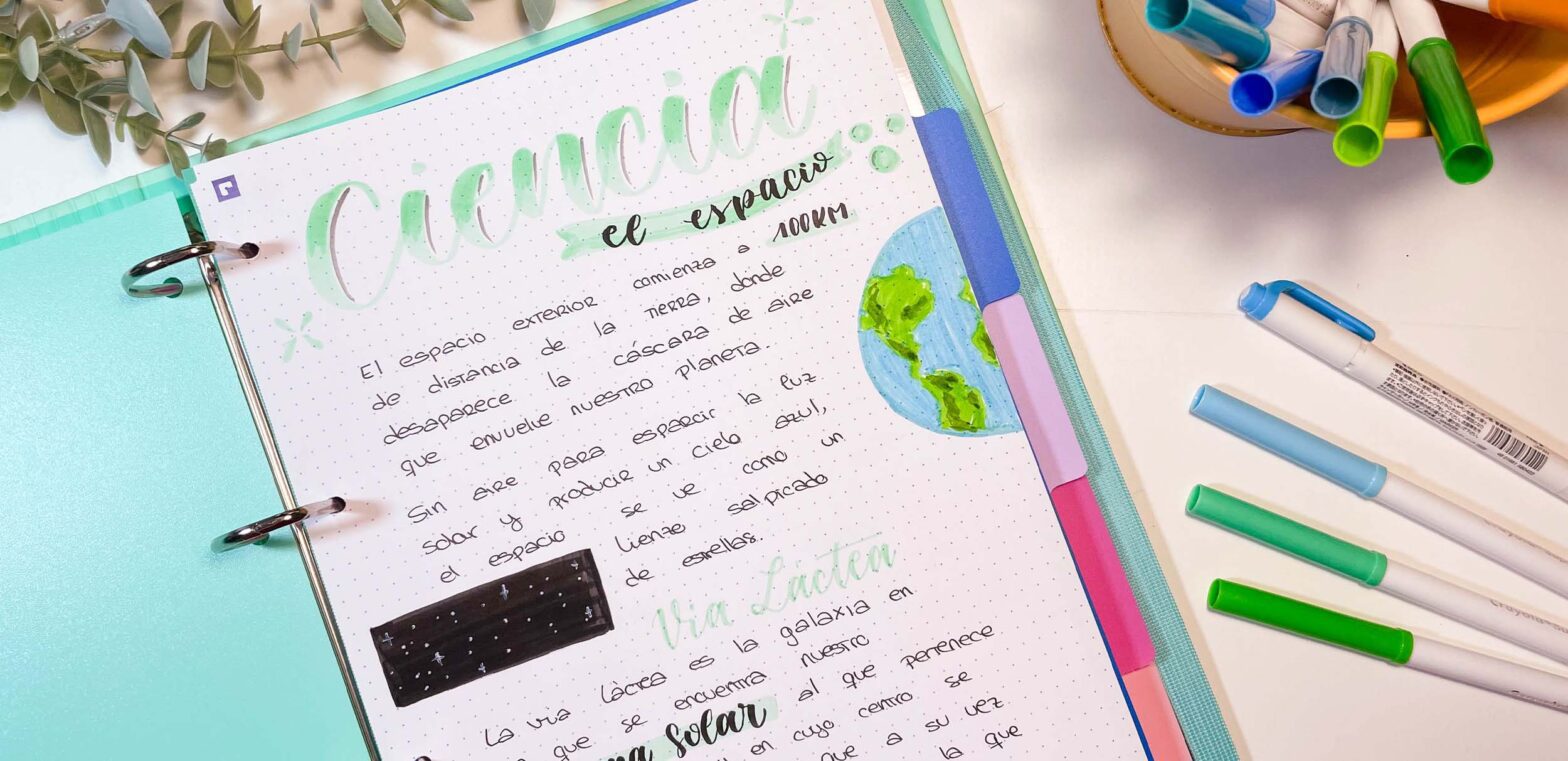 Ciencia
el espacio
El espacio exterior comienza a 100KM.
de distancia de la Tierra, donde
desaparece la cáscara de aire
que envuelve nuestro planeta.
Sin aire para esparcir la luz
solar y producir un cielo azul,
el espacio se ve como un
lienzo salpicado
de estrellas.
Vía Láctea
La vía láctea es la galaxia en
que se encuentra nuestro
solar al que pertenece
en cuyo centro se
que a su vez
la que